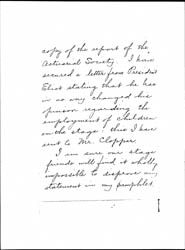 copy of the report of the
Actuarial Society. I have
secured a letter from President
Eliot stating that he has
in no way changed his
opinion regarding the
employment of children
on the stage. This I have
sent to Mr. Clopper.
I am sure our stage
friends will find it wholly
impossible to disprove any
statement in my pamphlet